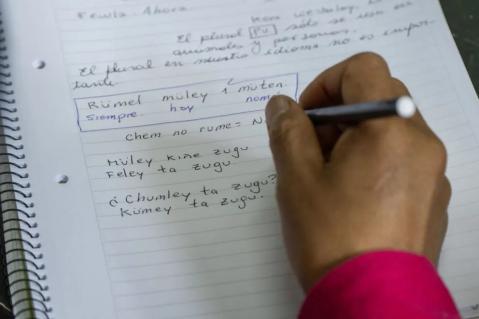 Fewla. Ahora
El plural Pu solo se usa en
animales y personas.
El plural en nuestro idioma no es impor-
tante
Rumel müley i müten.
Siempre hay
chem no rume = N
Müley kiñe zugu
Feley ta zugu
¿Chumley ta zugu?
Kümey ta zugu.